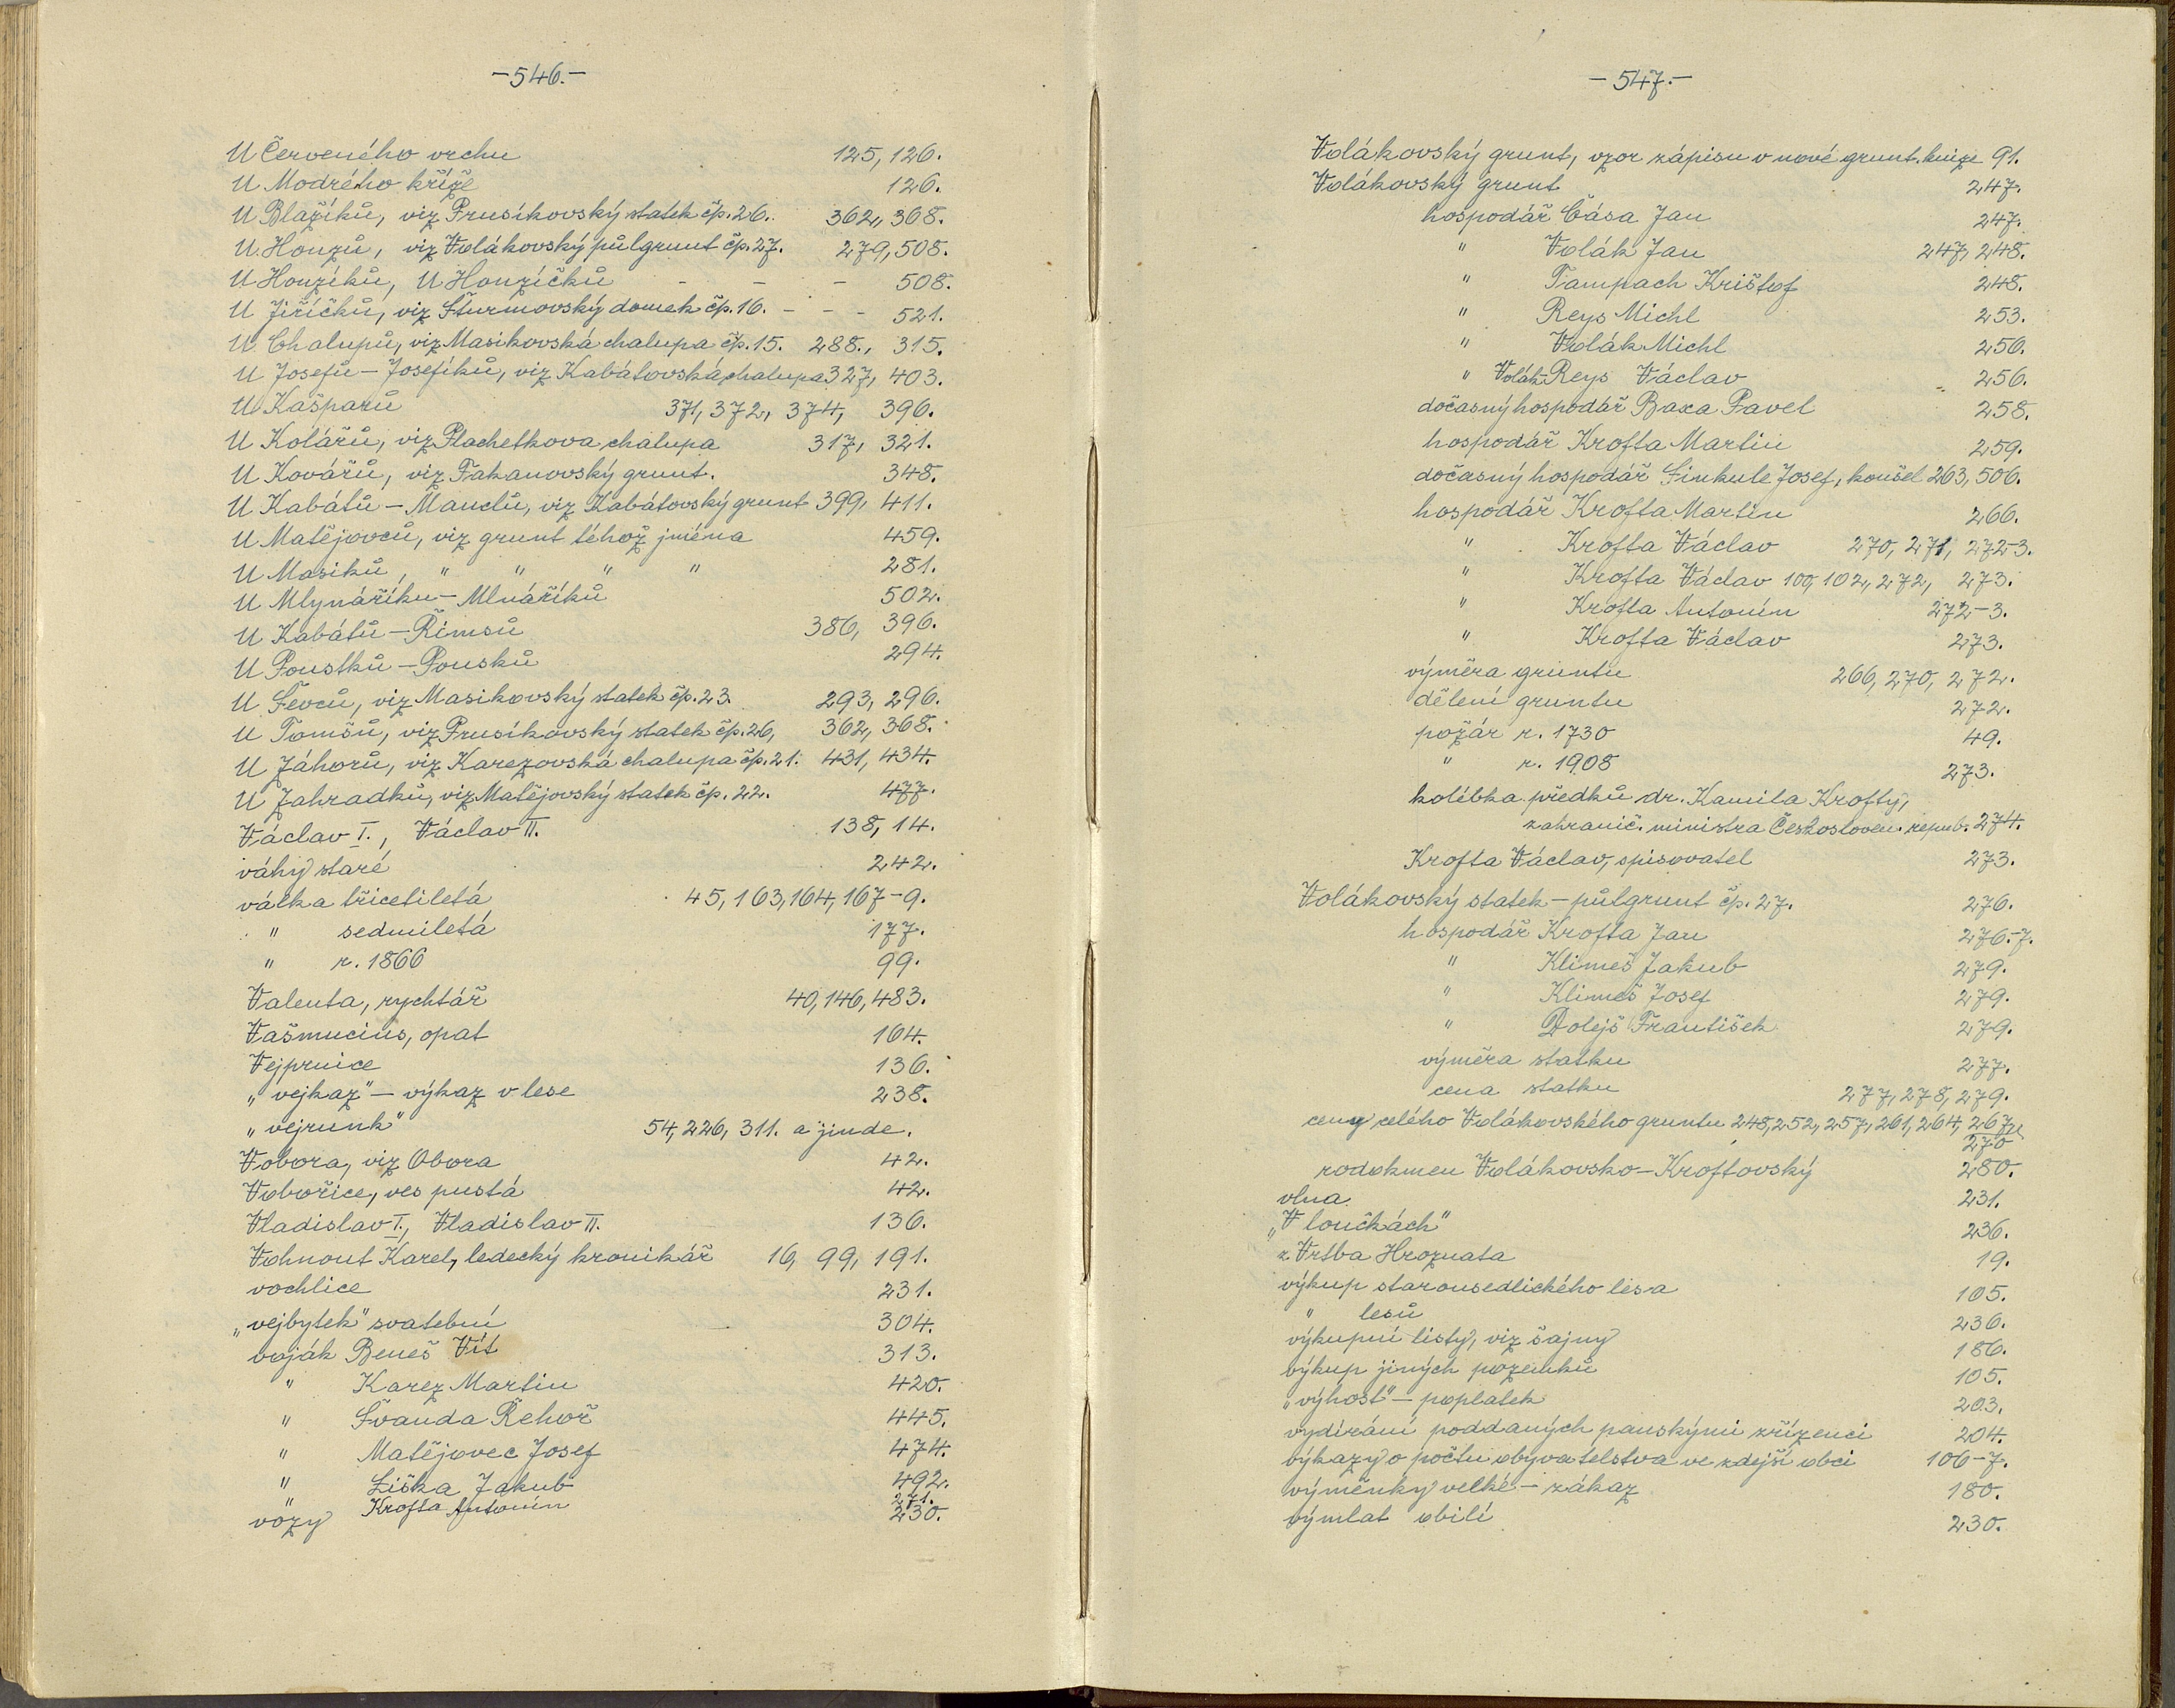 -546.-
U Červeného vrchu 125, 126.
U Modrého kříže 126.
U Blažíků, viz Prusíkovský statek čp. 26. 362, 368.
U Honzů, viz Volákovský půlgrunt čp. 27. 279, 508.
U Honzíků, U Honzíčků - - - 508.
U Jiříčků, viz Šturmovský domek čp. 16. - - - 521.
U Chalupů, viz Masikovská chalupa čp. 15. 288., 315.
U Josefů - Josefíků, viz Kabátovská chalupa 327, 403.
U Kašparů 371, 372, 374, 396.
U Kolářů, viz Plachetkova chalupa 317, 321.
U Kovářů, viz Takanovský grunt. 348.
U Kabátů - Manclů, viz Kabátovský grunt 399, 411.
U Matějovců, viz grunt téhož jména 459.
U Masiků, " " " " 281.
U Mlynáříku - Mlnáříků 502.
U Kabátů - Římsů 386, 396.
U Poustků - Pousků 294.
U Ševců, viz Masikovský statek čp. 23. 293, 296.
U Tomšů, viz Prusíkovský statek čp. 26, 362, 368.
U Záhorů, viz Karezovská chalupa čp. 21. 431, 434.
U Zahradků, viz Matějovský statek čp. 22. 477.
Václav I., Václav II. 138, 14.
váhy staré 242.
válka třicetiletá 45, 163, 164, 167-9.
" sedmiletá 177.
" r. 1866 99.
Valenta, rychtář 40, 146, 483.
Vašmucius, opat 164.
Vejprnice 136.
„vejkaz" - výkaz v lese 238.
„vejrunk" 54, 226, 311. a jinde.
Vobora, viz Obora 42.
Vobořice, ves pustá 42.
Vladislav I., Vladislav II. 136.
Vohnout Karel, ledecký kronikář 16, 99, 191.
vochlice 231.
„vejbytek" svatební 304.
voják Beneš Vít 313.
" Karez Martin 420.
" Švanda Řehoř 445.
" Matějovec Josef 474.
" Liška Jakub 492.
" Krofta Antonín 271.
vozy 230.
-547.-
Volákovský grunt, vzor zápisu v nové grunt. knize 91.
Volákovský grunt 247.
hospodář Čása Jan 247.
" Volák Jan 247, 248.
" Tampach Krištof 248.
" Reys Michl 253.
" Volák Michl 256.
" Volák-Reys Václav 256.
dočasný hospodář Baxa Pavel 258.
hospodář Krofta Martin 259.
dočasný hospodář Sinkule Josef, konšel 263, 506.
hospodář Krofta Martin 266.
" Krofta Václav 270, 271, 272-3.
" Krofta Václav 100, 102, 272, 273.
" Krofta Antonín 272-3.
" Krofta Václav 273.
výměra gruntu 266, 270, 272.
dělení gruntu 272.
požár r. 1730 49.
" r. 1908 273.
kolébka předků dr. Kamila Krofty,
zahranič. ministra Českosloven. repub. 274.
Krofta Václav, spisovatel 273.
Volákovský statek - půlgrunt čp. 27. 276.
hospodář Krofta Jan 276-7.
" Klimeš Jakub 279.
" Klimeš Josef 279.
" Dolejš František 279.
výměra statku 277.
cena statku 277, 278, 279.
ceny celého Volákovského gruntu 248, 252, 257, 261, 264, 267,
270
rodokmen Volákovsko-Kroftovský 280.
vlna 231.
„V loučkách" 236.
z Vrtba Hroznata 19.
výkup starousedlického lesa 105.
" lesů 236.
výkupní listy, viz šajny 186.
výkup jiných pozemků 105.
„výhost" - poplatek 203.
vydírání poddaných panskými zřízenci 204.
výkazy o počtu obyvatelstva ve zdejší obci 106-7.
výměnky velké - zákaz 180.
výmlat obilí 230.